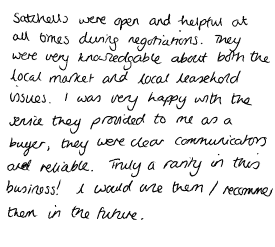 Satchells were open and helpful at
all times during negotiations. They
were very knowledgable about both the
local market and local leasehold
issues. I was very happy with the
service they provided to me as a
buyer, they were clear communicators
and reliable. Truly a rarity in this
business! I would use them / recommend
them in the future.